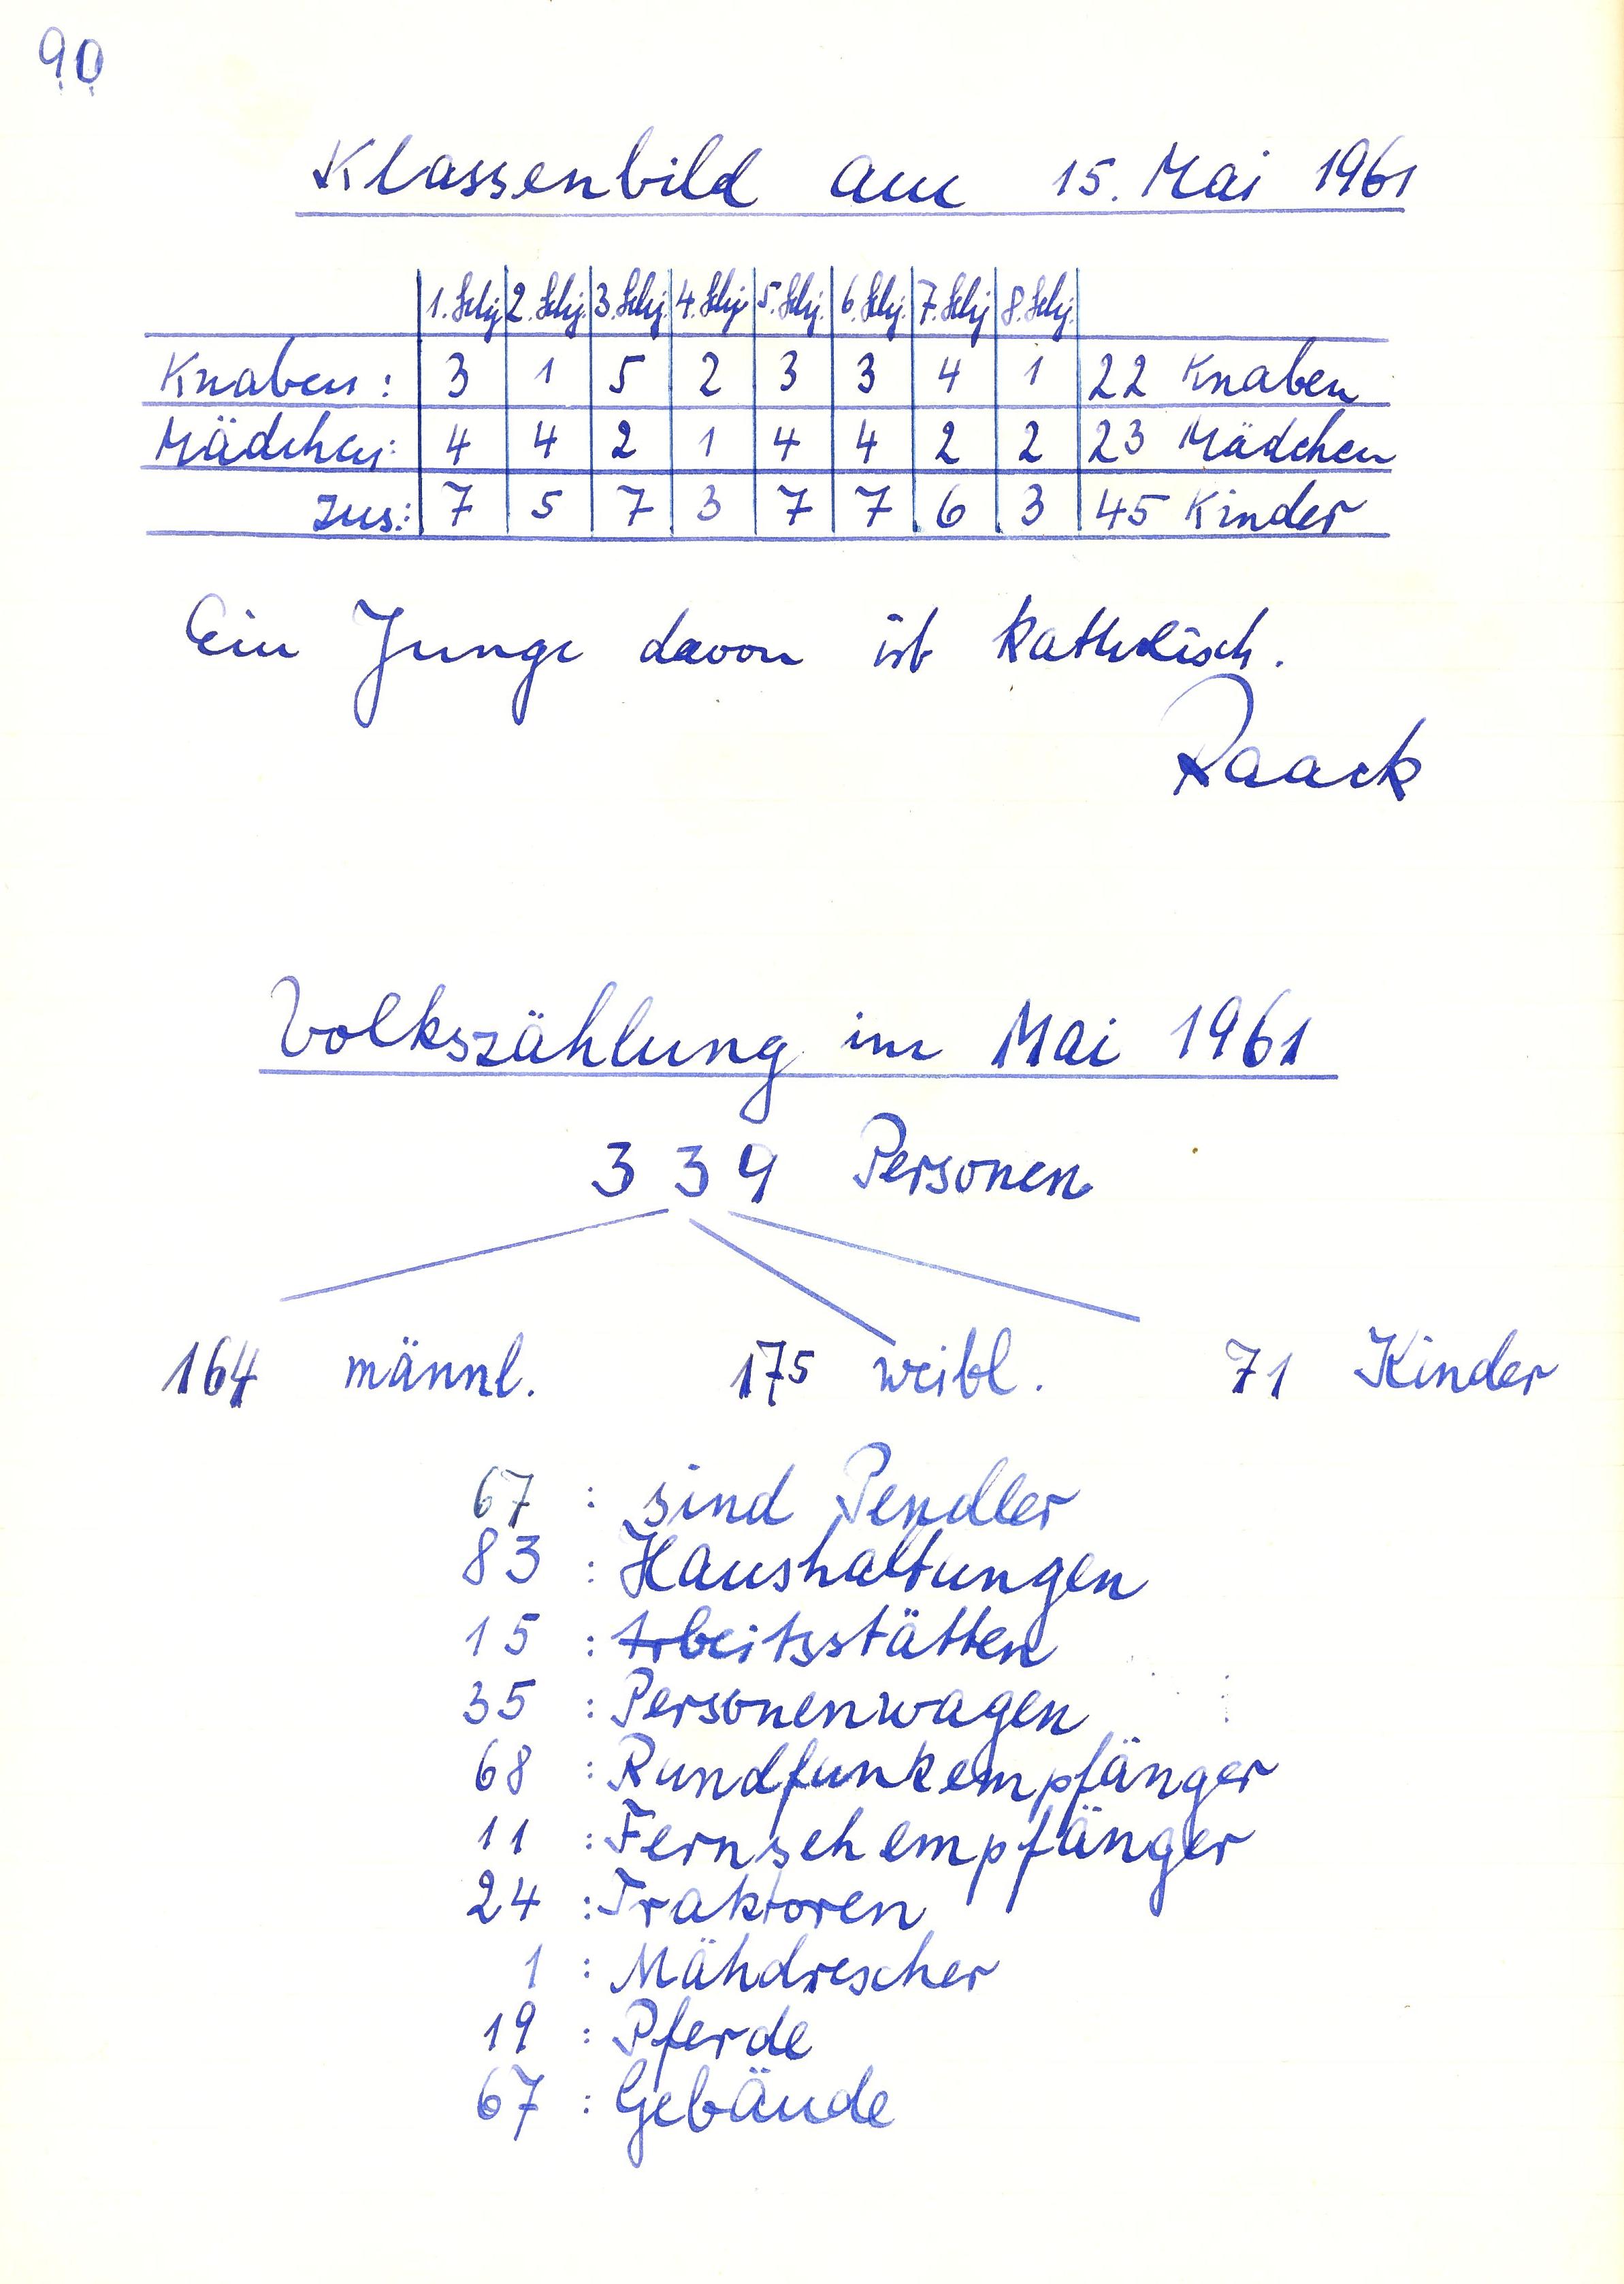 90
Klassenbild am 15. Mai 1961
1. Schj. 2. Schj. 3. Schj. 4. Schj. 5. Schj. 6. Schj. 7. Schj. 8. Schj.
Knaben: 3 1 5 2 3 3 4 1 22 Knaben
Mädchen: 4 4 2 1 4 4 2 2 23 Mädchen
zus.: 7 5 7 3 7 7 6 3 45 Kinder
Ein Junge davon ist katholisch.
Raack
Volkszählung im Mai 1961
339 Personen
164 männl. 175 weibl. 71 Kinder
67 : sind Pendler
83 : Haushaltungen
15 : Arbeitsstätten
35 : Personenwagen
68 : Rundfunkempfänger
11 : Fernsehempfänger
24 : Traktoren
1 : Mähdrescher
19 : Pferde
67 : Gebäude